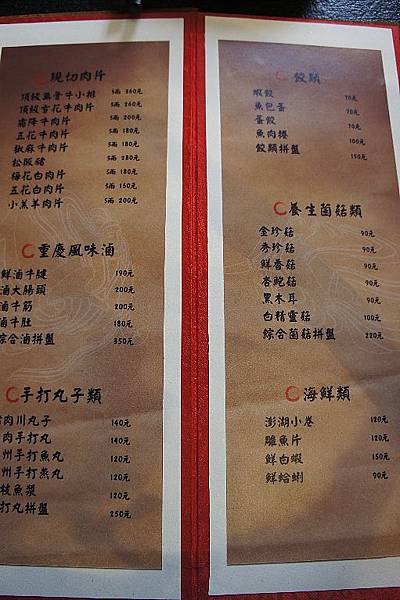 現切肉片
頂級無骨牛小排 5兩 360元
頂級雪花牛肉片 5兩 260元
霜降牛肉片 5兩 200元
五花牛肉片 5兩 180元
椒麻牛肉片 5兩 180元
松阪豬 5兩 280元
梅花白肉片 5兩 180元
五花白肉片 5兩 160元
小羔羊肉片 5兩 200元
重慶風味滷
鮮滷牛腱 190元
滷大腸頭 200元
滷牛筋 200元
滷牛肚 180元
綜合滷拼盤 350元
手打丸子類
肉川丸子 140元
肉手打丸 140元
州手打魚丸 120元
州手打燕丸 120元
枝魚漿 120元
打丸拼盤 250元
餃類
蝦餃 70元
魚包蛋 70元
蛋餃 70元
魚肉捲 100元
餃類拼盤 150元
養生菌菇類
金珍菇 90元
秀珍菇 90元
鮮香菇 90元
杏鮑菇 90元
黑木耳 90元
白精靈菇 100元
綜合菌菇拼盤 220元
海鮮類
澎湖小卷 120元
鵰魚片 120元
鮮白蝦 150元
鮮蛤蜊 90元